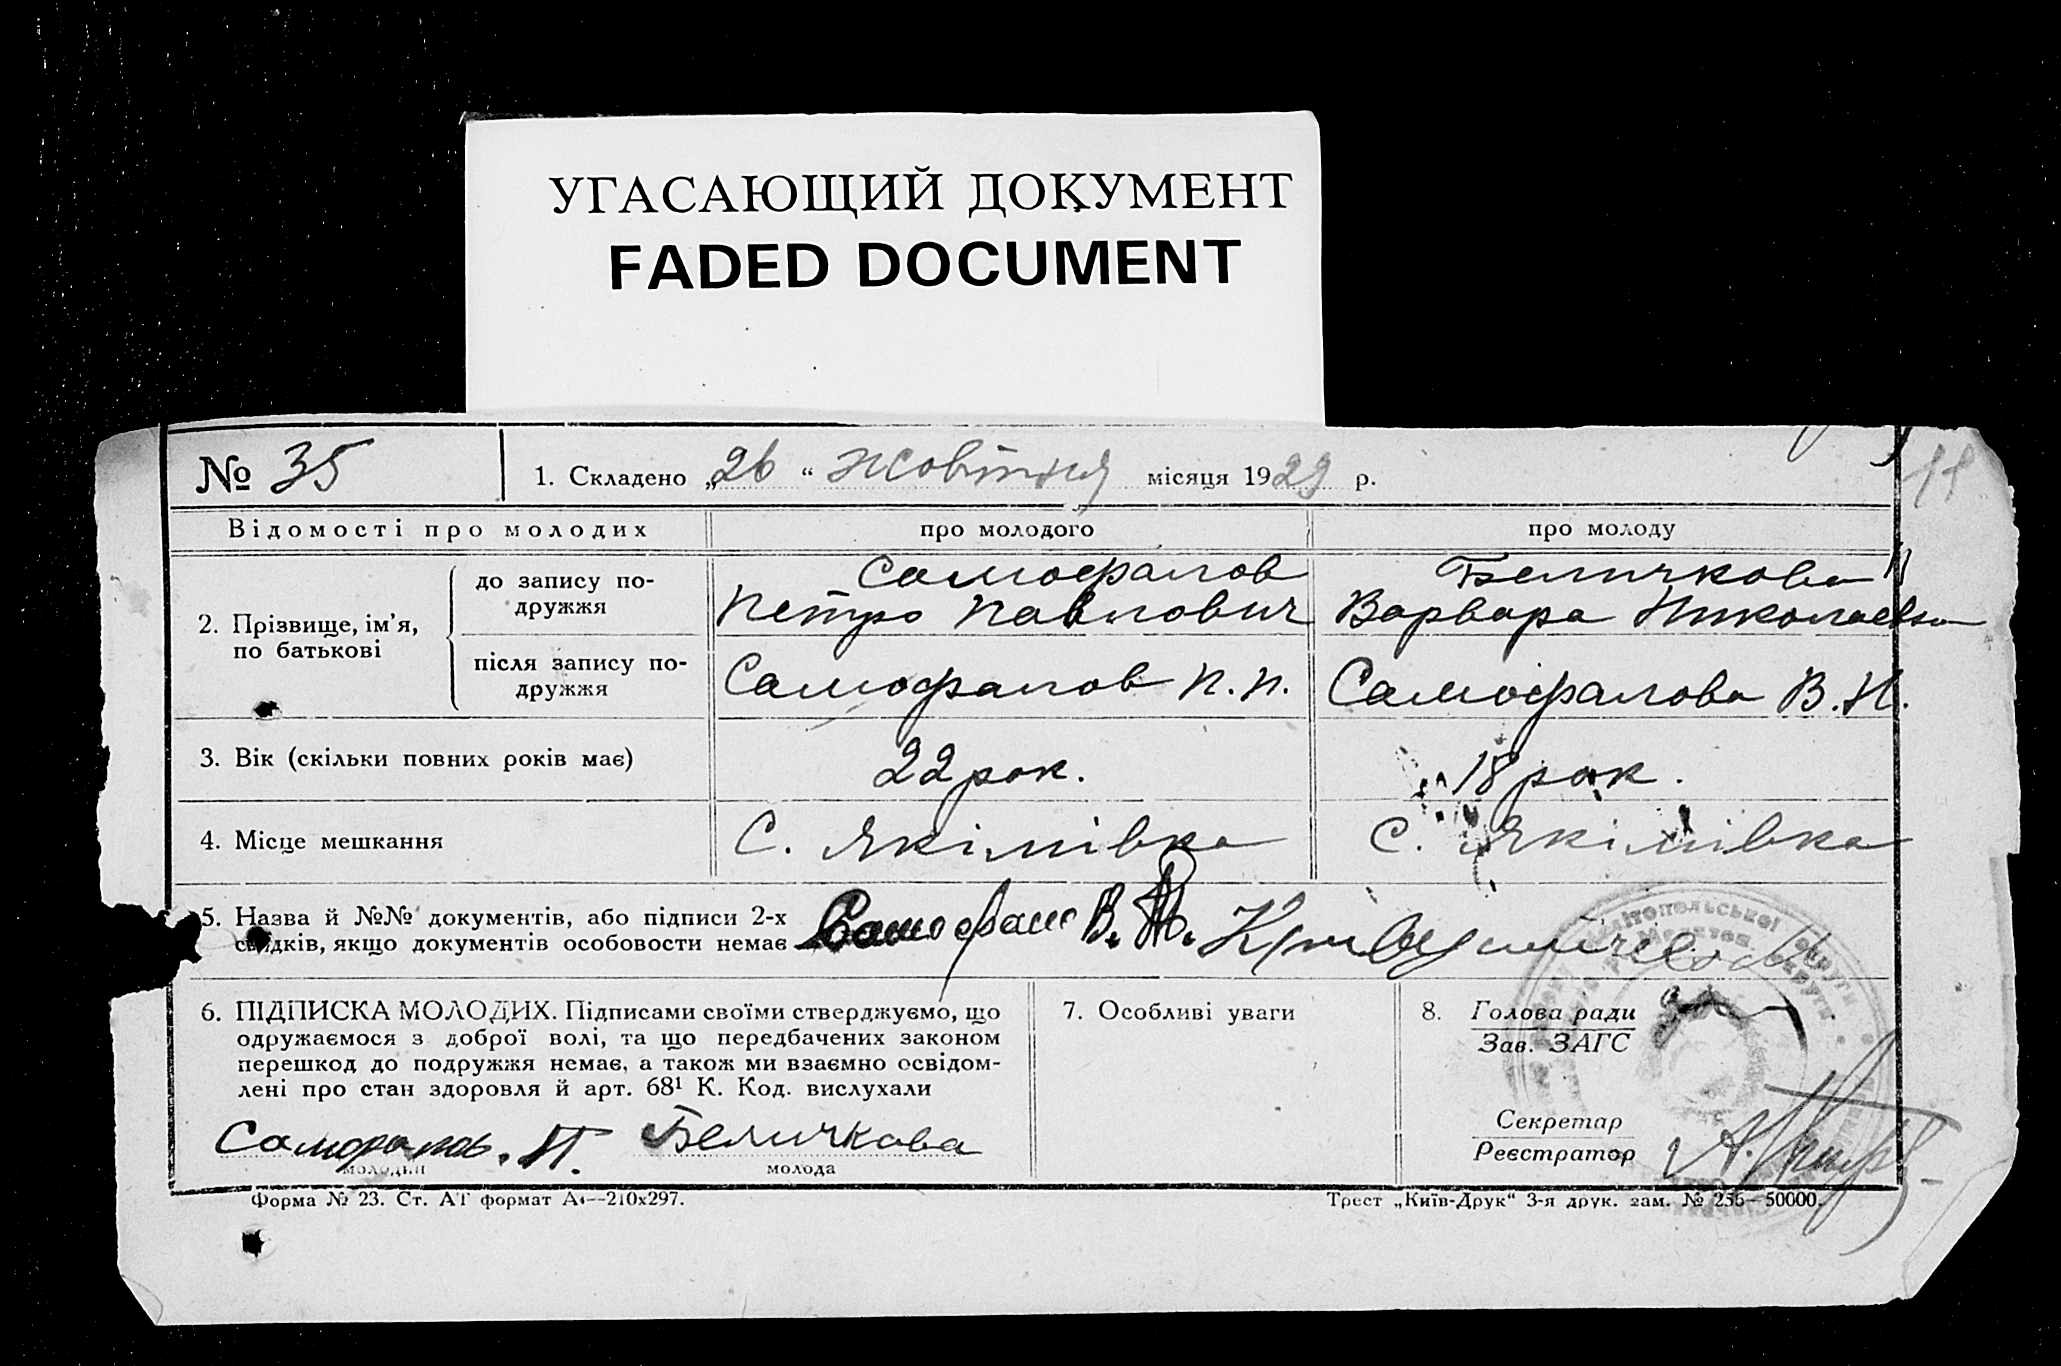 УГАСАЮЩИЙ ДОКУМЕНТ
FADED DOCUMENT
11
№ 35
1. Складено „26“ жовтня місяця 1929 р.
Відомості про молодих
про молодого
про молоду
2. Прізвище, ім'я, по батькові
до запису по-
дружжя
Самофалов
Петро Павлович
Беличкова
Варвара Николаевна
після запису по-
дружжя
Самофалов П. П.
Самофалова В. Н.
3. Вік (скільки повних років має)
22 рок.
18 рок.
4. Місце мешкання
С. Якімівка
С. Якімівка
5. Назва й №№ документів, або підписи 2-х
свідків, якщо документів особовости немає
Самофалов В.
6. ПІДПИСКА МОЛОДИХ. Підписами своїми стверджуємо, що
одружаємося з доброї волі, та що передбачених законом
перешкод до подружжя немає, а також ми взаємно освідом-
лені про стан здоровля й арт. 68¹ К. Код. вислухали
Самофалов. П.
Беличкова
молодий
молода
7. Особливі уваги
8. Голова ради
Зав. ЗАГС
Секретар
Реєстратор
Форма № 23. Ст. АТ формат А4—210х297.
Трест „Київ-Друк“ 3-я друк. зам. № 256—50000.